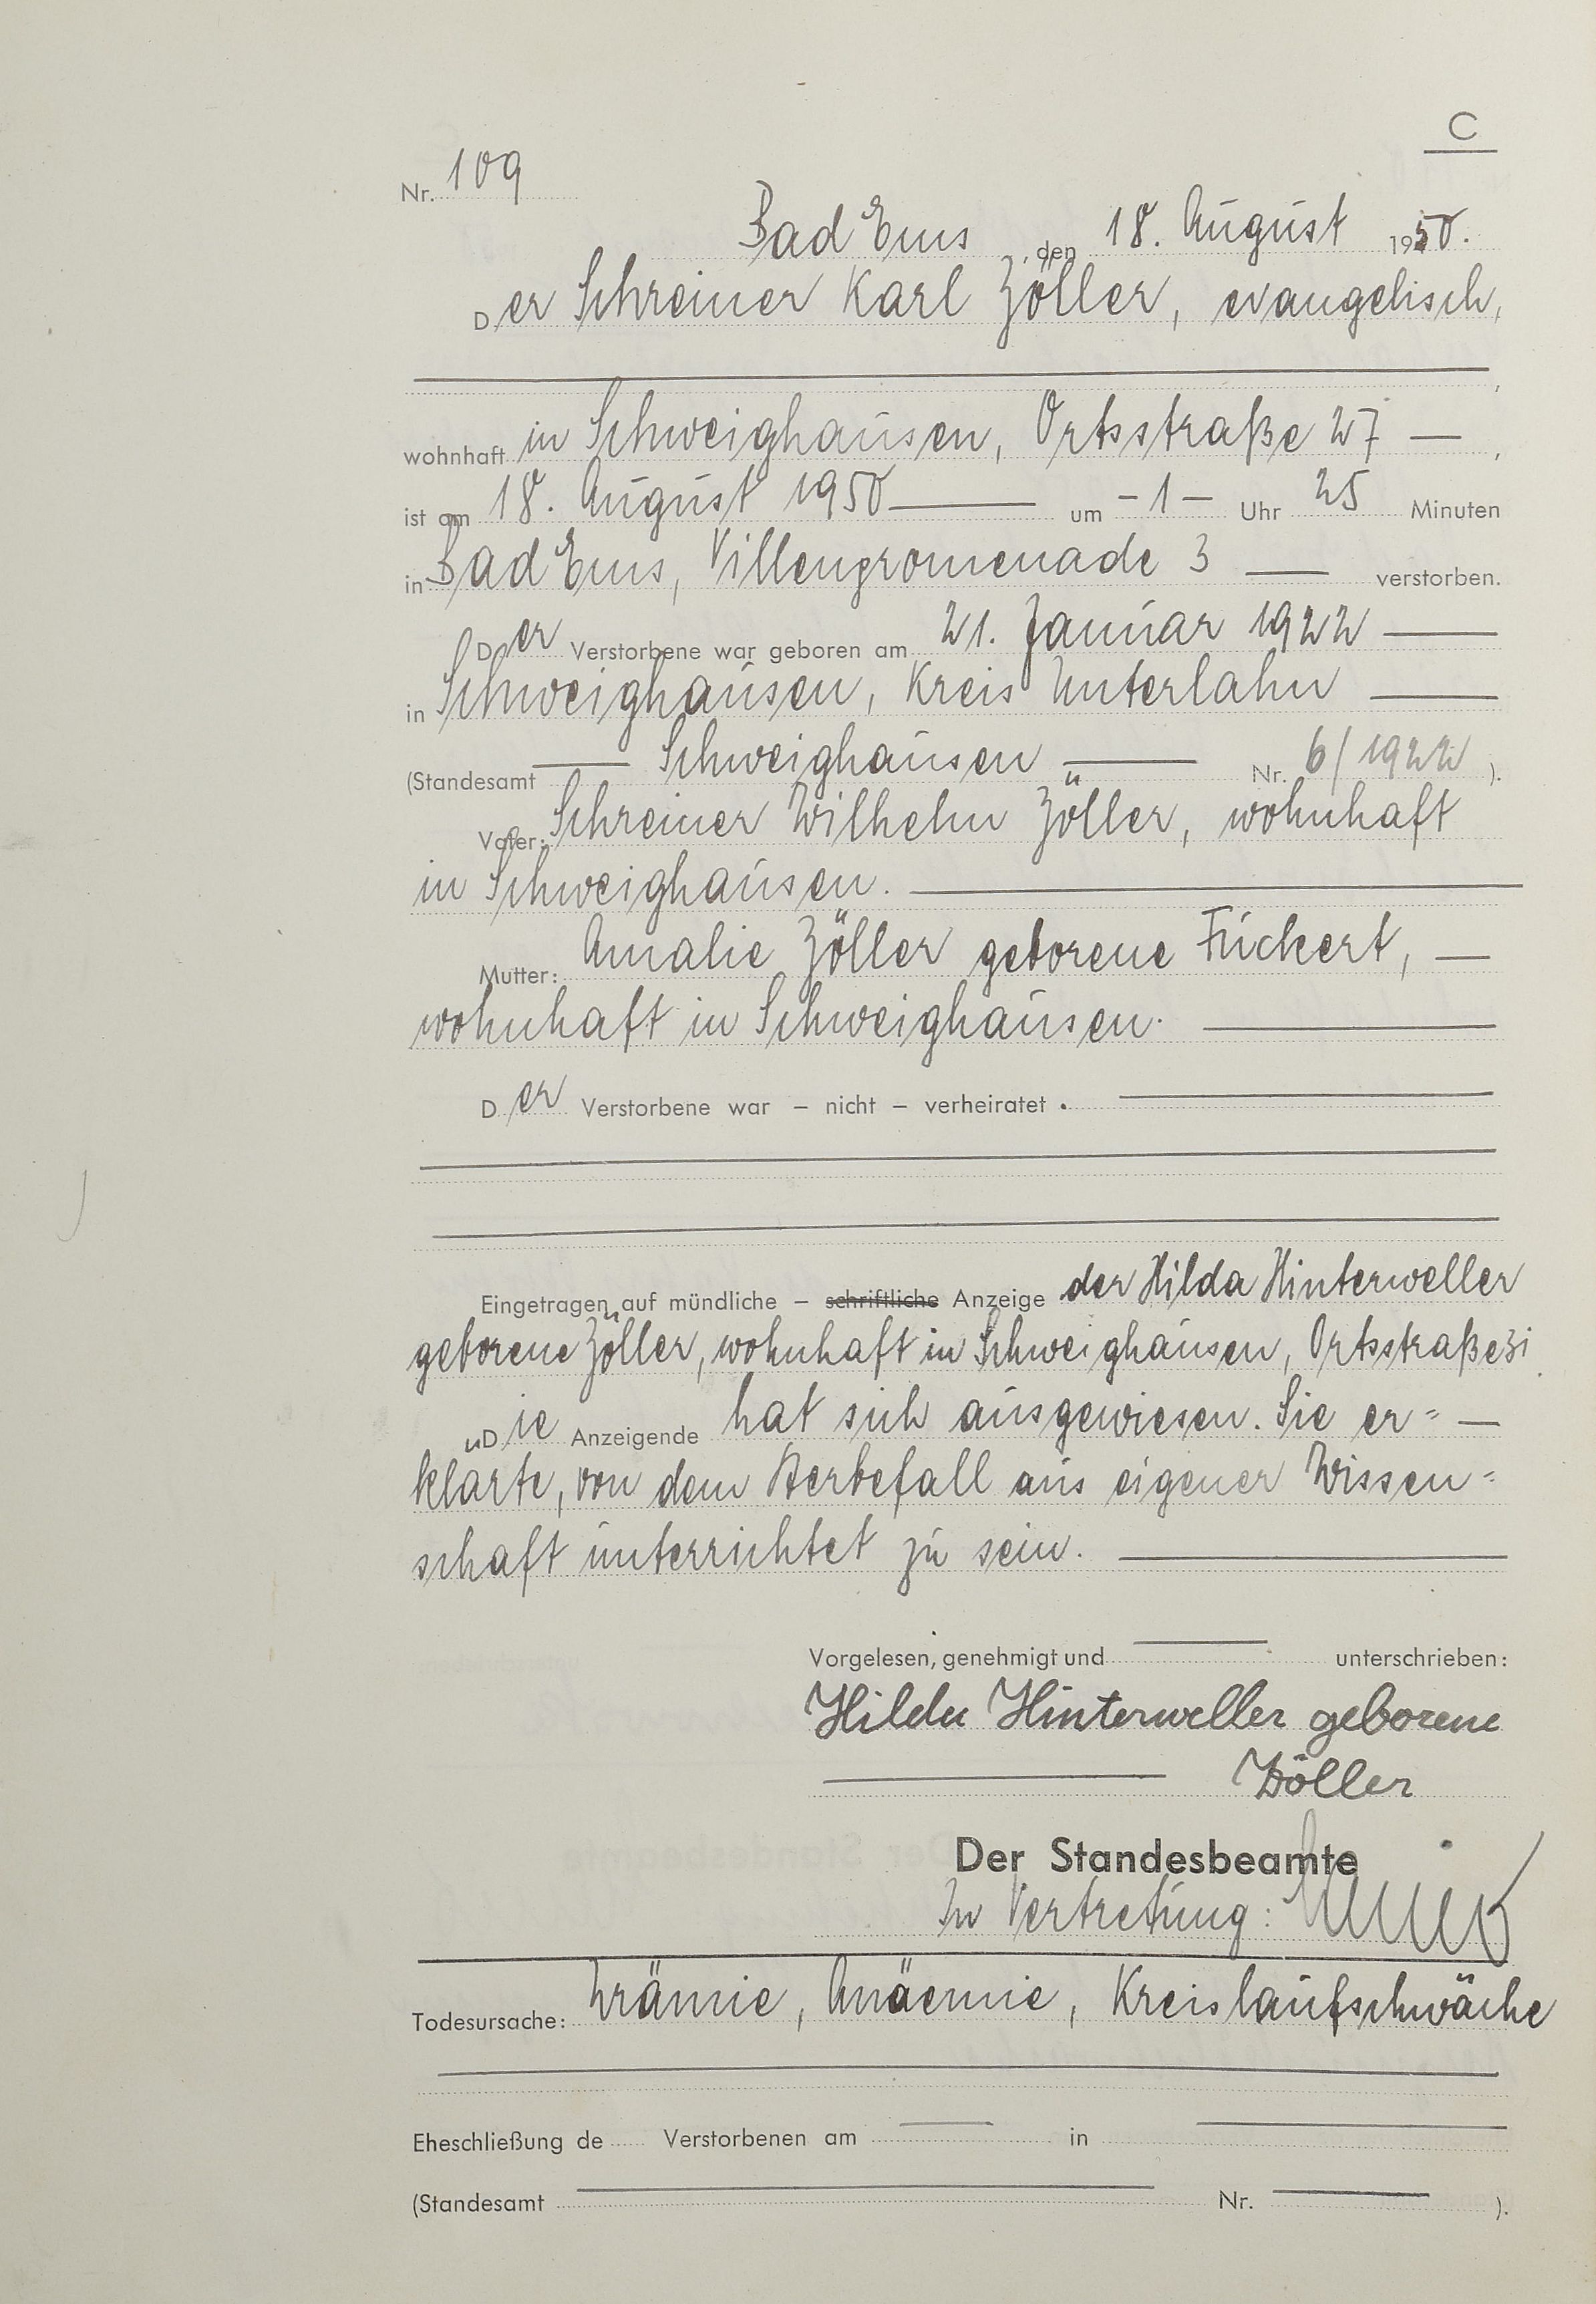 C
Nr. 109
Bad Ems, den 18. August 1950.
Der Schreiner Karl Zöller, evangelisch,
wohnhaft in Schweighausen, Ortsstraße 27 —,
ist am 18. August 1950 — um -1- Uhr 25 Minuten
in Bad Ems, Villenpromenade 3 — verstorben.
Der Verstorbene war geboren am 21. Januar 1922 —
in Schweighausen, Kreis Unterlahn —
(Standesamt — Schweighausen — Nr. 6/1922).
Vater: Schreiner Wilhelm Zöller, wohnhaft
in Schweighausen. —
Mutter: Amalie Zöller geborene Fuckert, —
wohnhaft in Schweighausen. —
Der Verstorbene war – nicht – verheiratet. —
Eingetragen auf mündliche – schriftliche Anzeige der Hilda Hinterweller
geborene Zöller, wohnhaft in Schweighausen, Ortsstraße 31.
Die Anzeigende hat sich ausgewiesen. Sie er= —
klärte, von dem Sterbefall aus eigener Wissen=
schaft unterrichtet zu sein. —
Vorgelesen, genehmigt und — unterschrieben:
Hilda Hinterweller geborene
— Zöller
Der Standesbeamte
In Vertretung:
Todesursache: Urämie, Anäemie, Kreislaufschwäche
Eheschließung de Verstorbenen am — in —
(Standesamt — Nr. —).